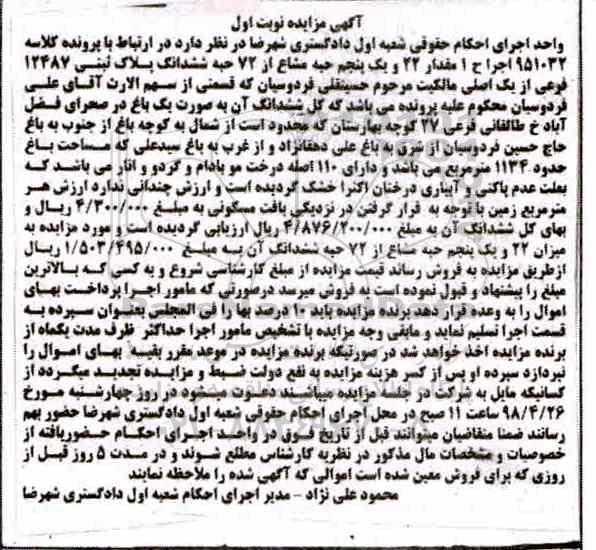 آگهی مزایده نوبت اول
واحد اجرای احکام حقوقی شعبه اول دادگستری شهرضا در نظر دارد در ارتباط با پرونده کلاسه
۹۵۱۰۳۲ اجرا ح ۱ مقدار ۲۲ و یک پنجم حبه مشاع از ۷۲ حبه ششدانگ پلاک ثبتی ۱۲۴۸۷
فرعی از یک اصلی مالکیت مرحوم حسینقلی فردوسیان که قسمتی از سهم الارث آقای علی
فردوسیان محکوم علیه پرونده می باشد که کل ششدانگ آن به صورت یک باغ در صحرای فضل
آباد خ طالقانی فرعی ۲۷ کوچه بهارستان که محدود است از شمال به کوچه باغ از جنوب به باغ
حاج حسین فردوسیان از شرق به باغ علی دهقانزاد و از غرب به باغ سیدعلی که مساحت باغ
حدود ۱۱۳۴ مترمربع می باشد و دارای ۱۱۰ اصله درخت مو بادام و گردو و انار می باشد که
بعلت عدم پاکنی و آبیاری درختان اکثرا خشک گردیده است و ارزش چندانی ندارد ارزش هر
مترمربع زمین با توجه به قرار گرفتن در نزدیکی بافت مسکونی به مبلغ ۴/۳۰۰/۰۰۰ ریال و
بهای کل ششدانگ آن به مبلغ ۴/۸۷۶/۲۰۰/۰۰۰ ریال ارزیابی گردیده است و مورد مزایده به
میزان ۲۲ و یک پنجم حبه مشاع از ۷۲ حبه ششدانگ آن به مبلغ ۱/۵۰۳/۴۹۵/۰۰۰ ریال
ازطریق مزایده به فروش رساند قیمت مزایده از مبلغ کارشناسی شروع و به کسی که بالاترین
مبلغ را پیشنهاد و قبول نموده است به فروش میرسد درصورتی که مامور اجرا پرداخت بهای
اموال را به وعده قرار دهد برنده مزایده باید ۱۰ درصد بها را فی المجلس بعنوان سپرده به
قسمت اجرا تسلیم نماید و مابقی وجه مزایده با تشخیص مامور اجرا حداکثر ظرف مدت یکماه از
برنده مزایده اخذ خواهد شد در صورتیکه برنده مزایده در موعد مقرر بقیه بهای اموال را
نپردازد سپرده او پس از کسر هزینه مزایده به نفع دولت ضبط و مزایده تجدید میگردد از
کسانیکه مایل به شرکت در جلسه مزایده میباشند دعوت میشود در روز چهارشنبه مورخ
۹۸/۴/۲۶ ساعت ۱۱ صبح در محل اجرای احکام حقوقی شعبه اول دادگستری شهرضا حضور بهم
رسانند ضمنا متقاضیان میتوانند قبل از تاریخ فوق در واحد اجرای احکام حضوریافته از
خصوصیات و مشخصات مال مذکور در نظریه کارشناس مطلع شوند و در مدت ۵ روز قبل از
روزی که برای فروش معین شده است اموالی که آگهی شده را ملاحظه نمایند
محمود علی نژاد - مدیر اجرای احکام شعبه اول دادگستری شهرضا